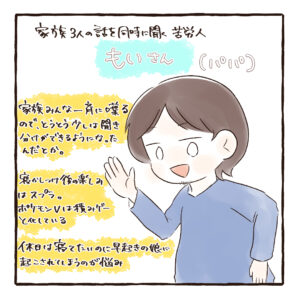 家族3人の話を同時に聞く苦労人
もいさん
(パパ)
家族みんな一斉に喋る
ので、とうとう少しは聞き
分けができるようになった
んだとか。
寝かしつけ後の楽しみ
はスプラ。
ポケモンVは積みゲー
と化している
休日は寝てたいのに早起きの娘に
起こされてしまうのが悩み